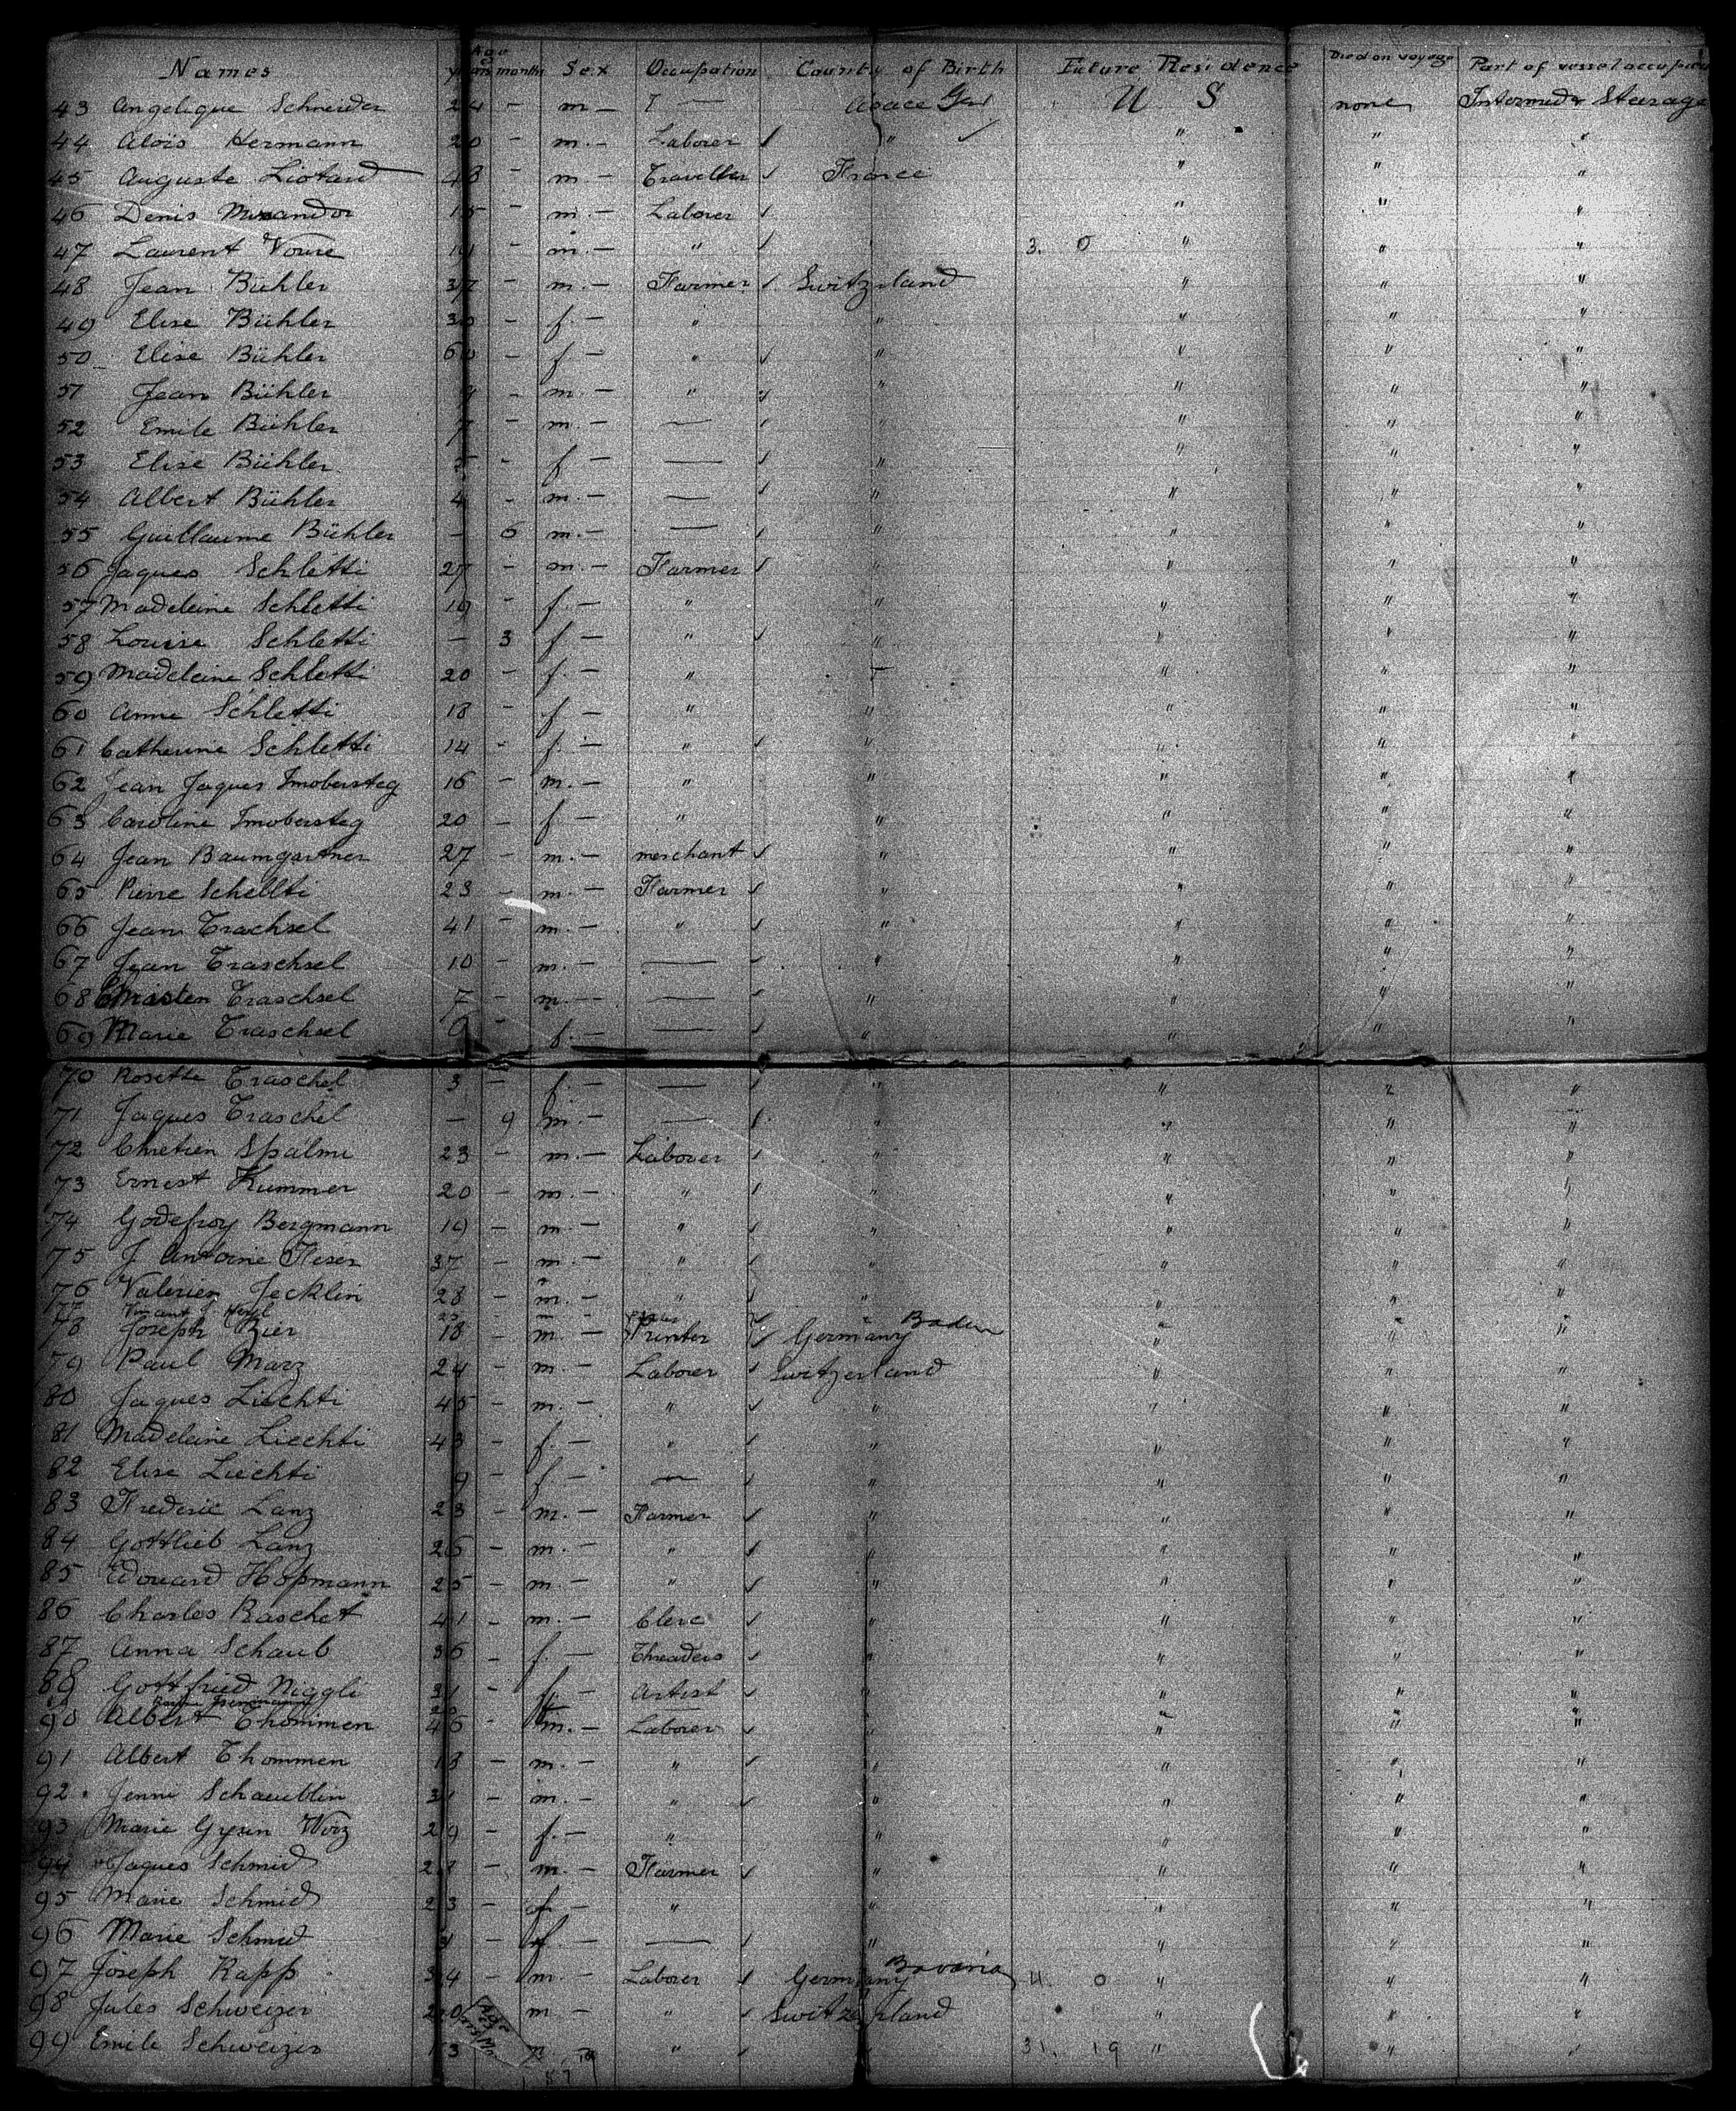 Names Age years months Sex Occupation Country of Birth Future Residence Died on voyage Part of vessel occupied
43 Angelique Schneider 24 - m - Alsace U S none Intermed & Steerage
44 Aloïs Hermann 20 - m. - Laborer " " " "
45 Auguste Liotard 43 - m - Traveller France " " "
46 Denis 15 - m. - Laborer " " "
47 Laurent - m. - " 3. 0 " " "
48 Jean Bühler 37 - m. - Farmer Switzerland " " "
49 Elise Bühler 30 - f. - " " " " "
50 Elise Bühler 60 - f - " " " " "
51 Jean Bühler 9 - m. - " " " " "
52 Emile Bühler 7 - m. - — " " " "
53 Elise Bühler - f - — " " " "
54 Albert Bühler 4 - m. - — " " " "
55 Guillaume Bühler - 6 m. - — " " " "
56 Jaques Schletti 27 - m. - Farmer " " " "
57 Madeleine Schletti 19 - f. - " " " " "
58 Louise Schletti — 3 f - " " " " "
59 Madeleine Schletti 20 - f. - " " " "
60 Anne Schletti 18 - f - " " " " "
61 Catherine Schletti 14 - f. - " " " " "
62 Jean Jaques Imobersteg 16 - m. - " " " " "
63 Caroline Imobersteg 20 - f - " " " " "
64 Jean Baumgartner 27 - m. - merchant " " " "
65 Pierre Schellti 23 - m. - Farmer " " " "
66 Jean Trachsel 41 - m. - " " " " "
67 Jean Traschsel 10 - m. - — " " " "
68 Christen Traschsel 7 - m. — — " " " "
69 Marie Traschsel f. - — " " " "
70 Rosette Traschel 3 - f. - — " " " "
71 Jaques Traschel — 9 m. - — " " " "
72 Chretien Spälmi 23 - m. - Laborer " " " "
73 Ernest Kummer 20 - m. - " " " " "
74 Godefroy Bergmann 19 - m. - " " " " "
75 J. Antoine Fleser 37 - m. - " " " " "
76 Valérien Jecklin 28 - m. - " " " " "
77
78 Joseph Bier 18 - m. - Printer Germany Baden " " "
79 Paul Marz 24 - m. - Laborer Switzerland " " "
80 Jaques Liechti 45 - m. - " " " " "
81 Madeleine Liechti 43 - f. - " " " " "
82 Elise Liechti 9 - f - — " " " "
83 Frederic Lanz 23 - m. - Farmer " " " "
84 Gottlieb Lanz 26 - m. - " " " " "
85 Edouard Hofmann 25 - m. - " " " " "
86 Charles Raschet 41 - m. - Clerc " " " "
87 Anna Schaub 36 - f. - Threaders " " " "
88 Gottfried Niggli 31 - Artist " " " "
90 Albert Thommen 46 - m. - Laborer " " " "
91 Albert Thommen 18 - m. - " " " " "
92 Jenni Schaeublin 31 - m. - " " " " "
93 Marie Gysin Wirz 29 - f. - " " " " "
94 Jaques Schmid 28 - m. - Farmer " " " "
95 Marie Schmid 23 - f - " " " " "
96 Marie Schmid - f. - — " " " "
97 Joseph Rapp 34 - m. - Laborer Germany Bavaria 4. 0 " " "
98 Jules Schweizer 20 m - " Switzerland " " "
99 Emile Schweizer 13 " 31. 19 " "